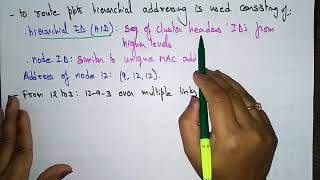 - to route pkts hierarchial addressing is used consisting of:-
. hierarchial ID (HID): Seq of cluster headers' IDs from
higher levels
. node ID: Similar to unique MAC add
Address of node 12: (9, 12, 12).
- From 12 to 3: 12-9-3 over multiple link